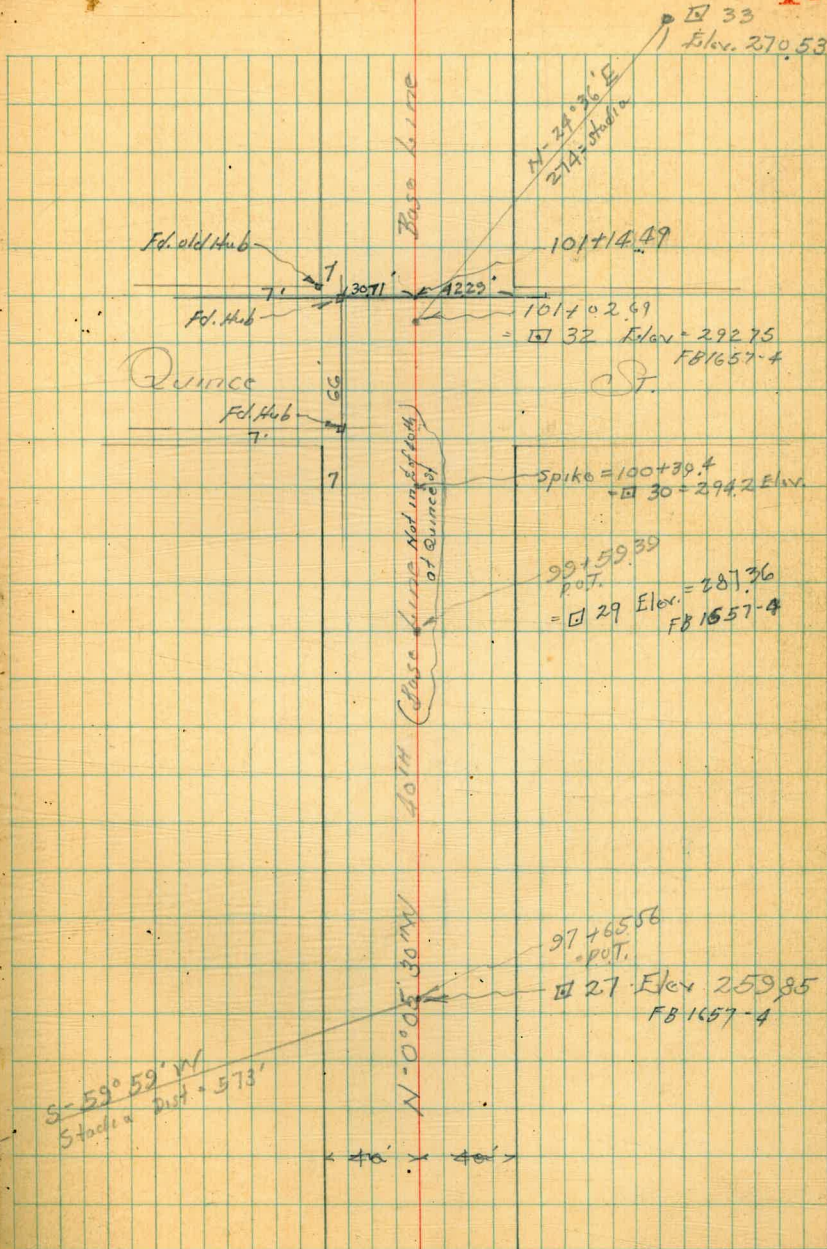 ⊡ 33
Elev. 270.53
N-24°36'E
274 = Stadia
Base Line
Fd. old Hub
7
101+14.49
7'
30.71'
42.23'
Fd. Hub
101+02.69
= ⊡ 32 Elev = 292.75
FB1657-4
Quince
St.
66
Fd. Hub
7'
7
Spike = 100+39.4
= ⊡ 30 = 294.2 Elev.
(Base Line Not in ℄ of 40th)
at Quince St
99+59.39
P.O.T.
= ⊡ 29 Elev. = 287.36
FB 1657-4
40TH
97+65.56
P.O.T.
⊡ 27 Elev 259.85
FB 1657-4
N-0°05'30"W
S-59°59'W
Stadia Dist = 573'
40' 40'